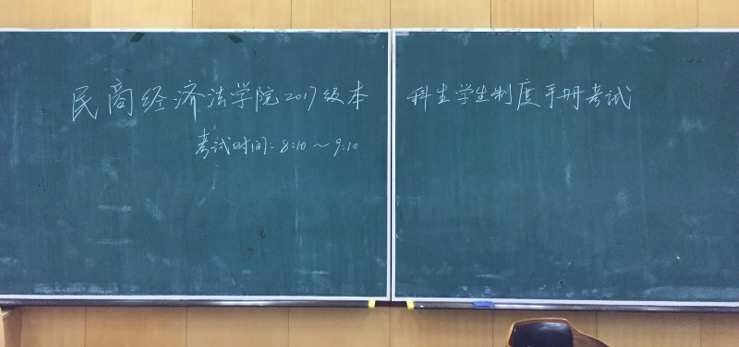 民商经济法学院2017级本科生学生制度手册考试
考试时间:8:10~9:10